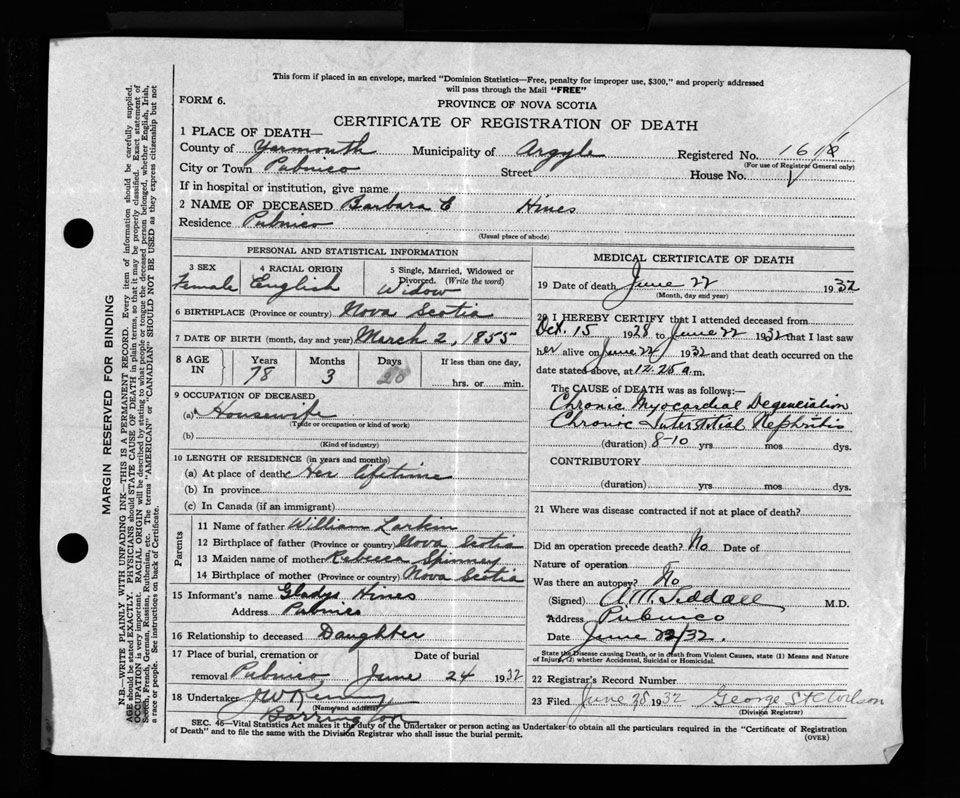 This form if placed in an envelope, marked "Dominion Statistics—Free, penalty for improper use, $300," and properly addressed
will pass through the Mail "FREE"
FORM 6.
PROVINCE OF NOVA SCOTIA
CERTIFICATE OF REGISTRATION OF DEATH
1 PLACE OF DEATH—
County of Yarmouth Municipality of Argyle Registered No. 1618
(For use of Registrar General only)
City or Town Pubnico Street House No.
If in hospital or institution, give name
2 NAME OF DECEASED Barbara E Hines
Residence Pubnico
(Usual place of abode)
PERSONAL AND STATISTICAL INFORMATION
3 SEX
Female
4 RACIAL ORIGIN
English
5 Single, Married, Widowed or
Divorced. (Write the word)
Widow
6 BIRTHPLACE (Province or country) Nova Scotia
7 DATE OF BIRTH (month, day and year) March 2, 1855
8 AGE IN
Years
78
Months
3
Days
20
If less than one day,
hrs. or min.
9 OCCUPATION OF DECEASED
(a) Housewife
(Trade or occupation or kind of work)
(b)
(Kind of industry)
10 LENGTH OF RESIDENCE (in years and months)
(a) At place of death Her lifetime
(b) In province
(c) In Canada (if an immigrant)
Parents
11 Name of father William Larkin
12 Birthplace of father (Province or country) Nova Scotia
13 Maiden name of mother Rebecca Spinney
14 Birthplace of mother (Province or country) Nova Scotia
15 Informant's name Gladys Hines
Address Pubnico
16 Relationship to deceased Daughter
17 Place of burial, cremation or Date of burial
removal Pubnico June 24 1932
18 Undertaker
(Name and address)
Barrington
MEDICAL CERTIFICATE OF DEATH
19 Date of death June 22 1932
(Month, day and year)
20 I HEREBY CERTIFY that I attended deceased from
Oct. 15 1928 to June 22 1932 that I last saw
her alive on June 22 1932 and that death occurred on the
date stated above, at 12.25 a.m.
The CAUSE of DEATH was as follows:—
Chronic Myocardial Degeneration
Chronic Interstitial Nephritis
(duration) 8-10 yrs mos. dys.
CONTRIBUTORY
(duration) yrs. mos. dys.
21 Where was disease contracted if not at place of death?
Did an operation precede death? No Date of
Nature of operation
Was there an autopsy? No
(Signed) M.D.
Address Pubnico
Date June 22/32.
State the Disease causing Death, or in death from Violent Causes, state (1) Means and Nature
of Injury, (2) whether Accidental, Suicidal or Homicidal.
22 Registrar's Record Number
23 Filed June 28 1932 George St C Wilson
(Division Registrar)
SEC. 46—Vital Statistics Act makes it the duty of the Undertaker or person acting as Undertaker to obtain all the particulars required in the "Certificate of Registration
of Death" and to file the same with the Division Registrar who shall issue the burial permit.
(OVER)
MARGIN RESERVED FOR BINDING
N.B.—WRITE PLAINLY WITH UNFADING INK—THIS IS A PERMANENT RECORD. Every item of information should be carefully supplied.
AGE should be stated EXACTLY. PHYSICIANS should STATE CAUSE OF DEATH in plain terms, so that it may be properly classified. Exact statement of
OCCUPATION is very important. RACIAL ORIGIN will be described by stating to what people or tongue the deceased person belonged, whether English, Irish,
Scotch, French, German, Russian, Ruthenian, etc. The terms "AMERICAN" or "CANADIAN" SHOULD NOT BE USED as they express citizenship but not
a race or people. See instructions on back of Certificate.